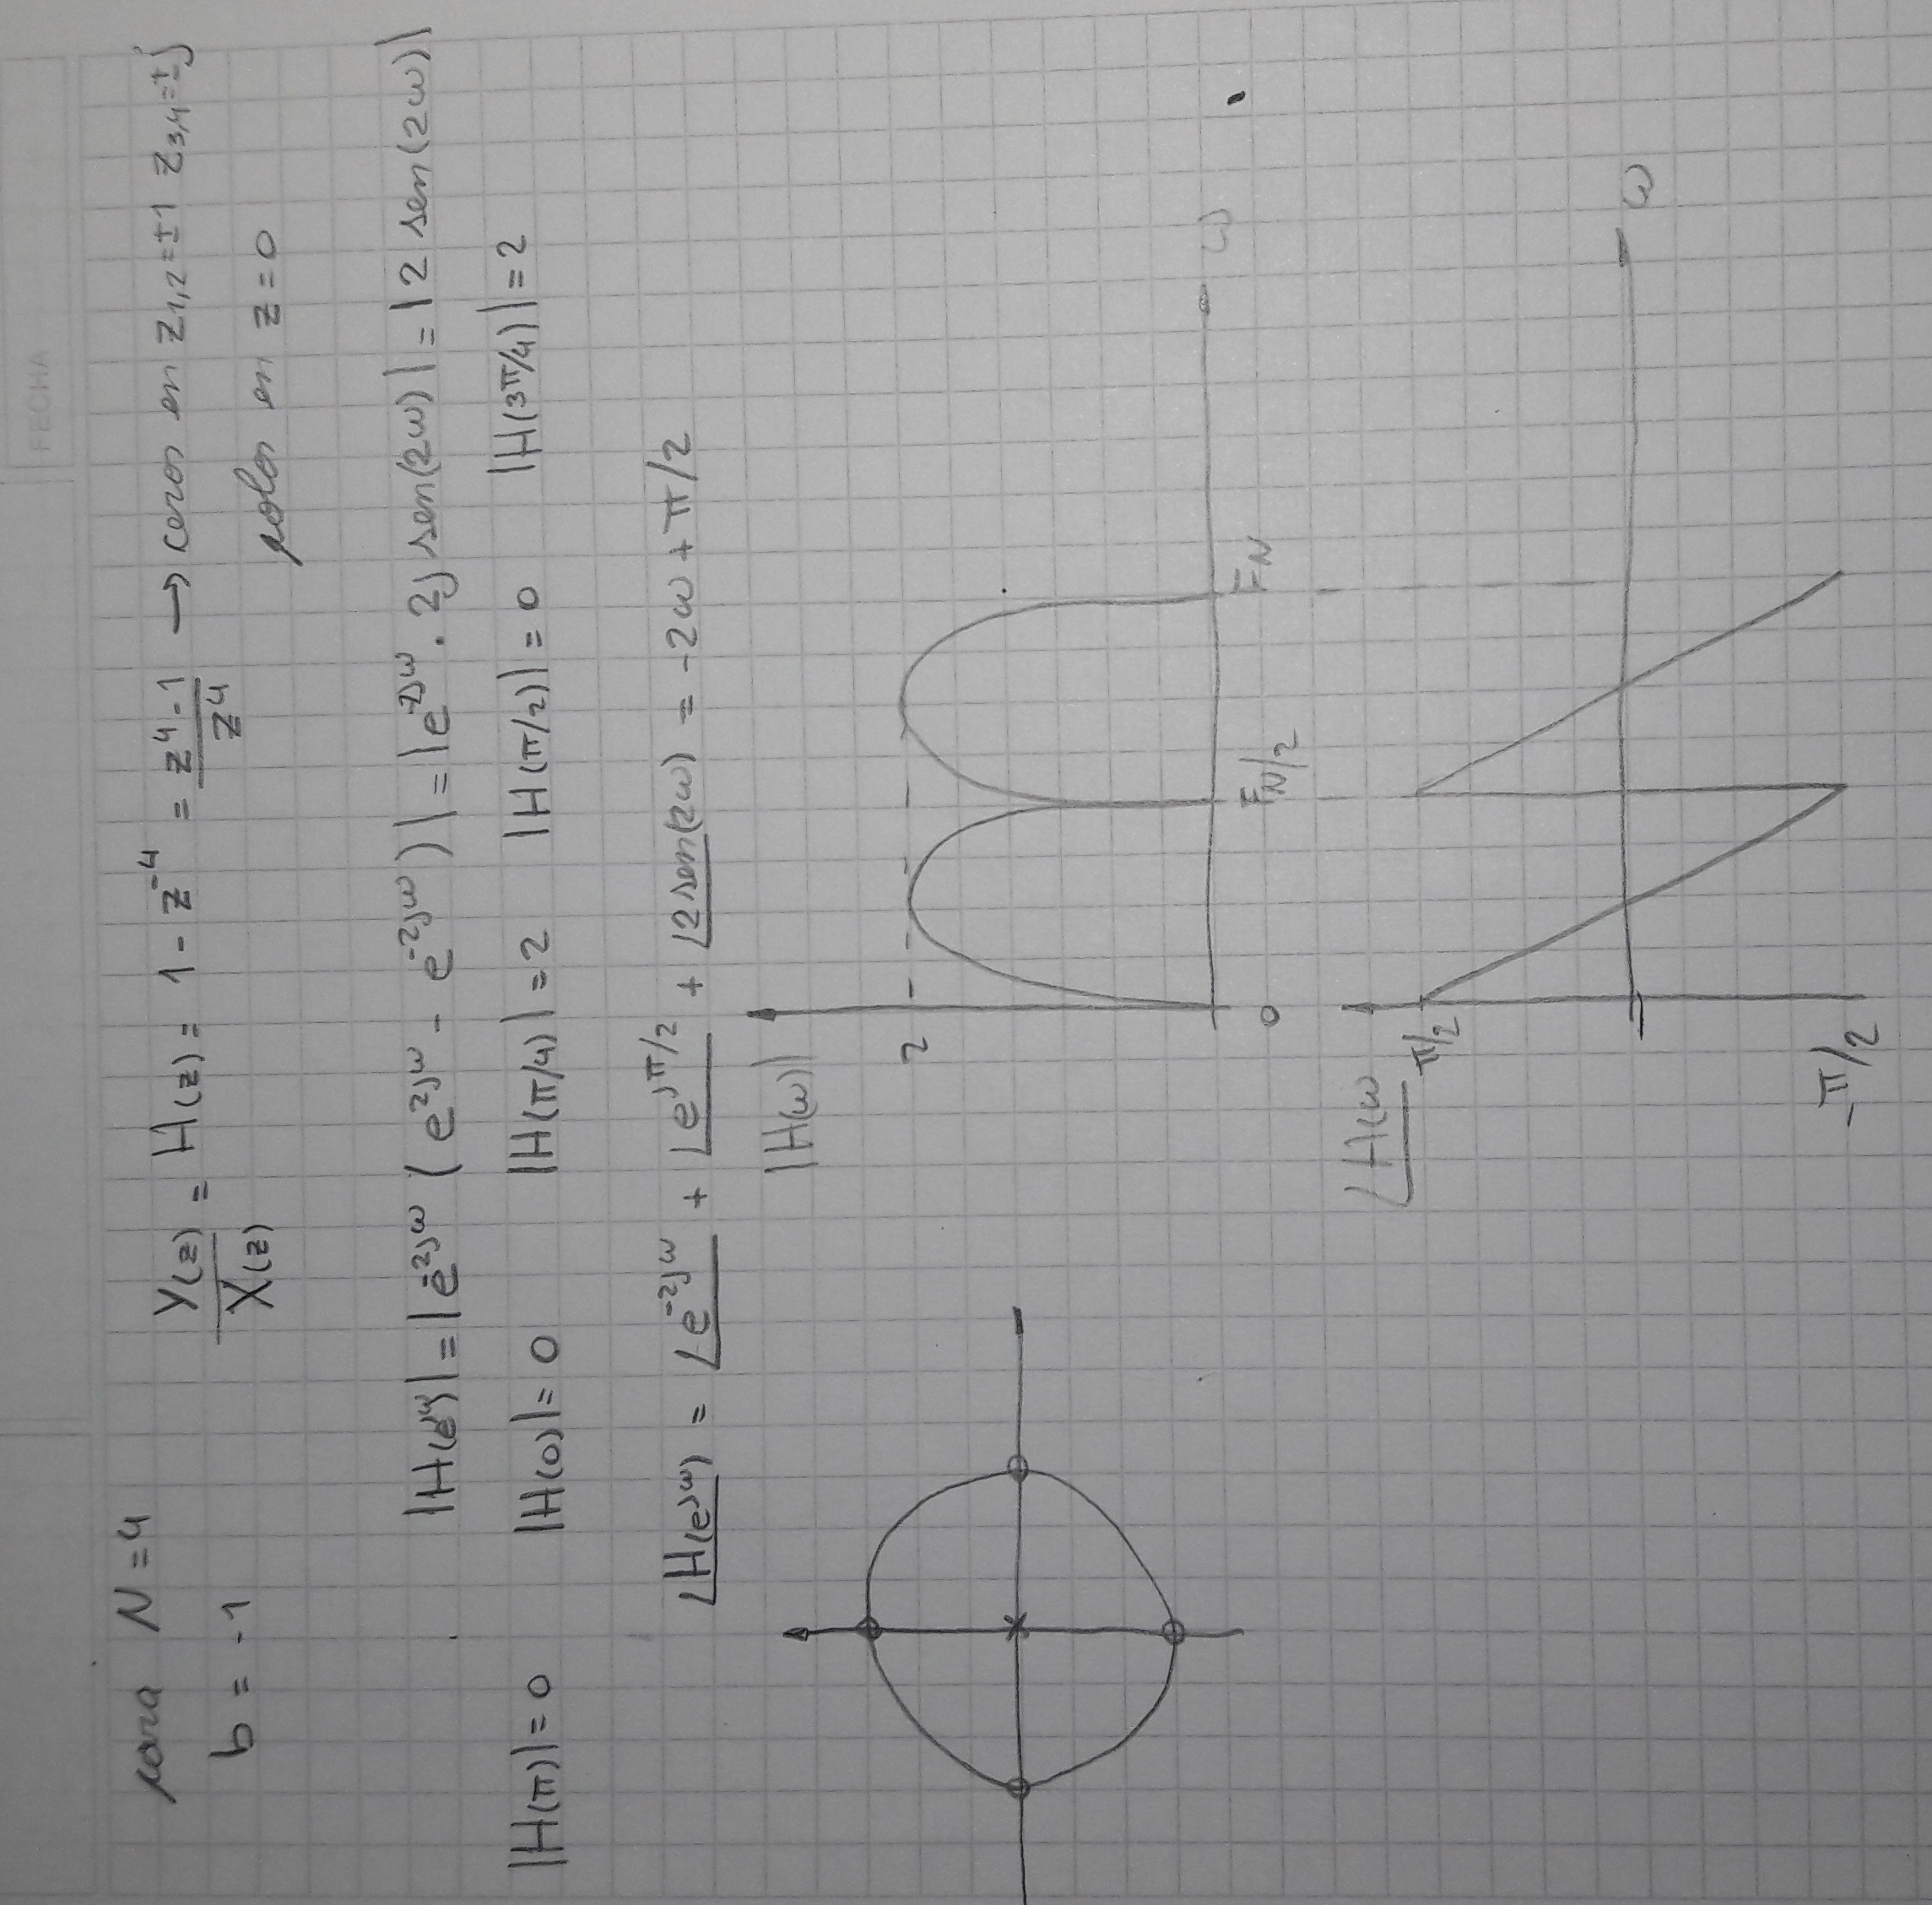 FECHA
para N = 4
b = -1
Y(z)/X(z) = H(z) = 1 - z^-4 = (z^4 - 1)/z^4 → ceros en z1,2 = ±1 z3,4 = ±j
polos en z = 0
|H(e^jω)| = |e^-2jω (e^2jω - e^-2jω)| = |e^-2jω · 2j sen(2ω)| = |2 sen(2ω)|
|H(π)| = 0 |H(0)| = 0 |H(π/4)| = 2 |H(π/2)| = 0 |H(3π/4)| = 2
∠H(e^jω) = ∠e^-2jω + ∠e^jπ/2 + ∠2 sen(2ω) = -2ω + π/2
|H(ω)|
2
ω
0 FN/2 FN
∠H(ω
π/2
ω
-π/2